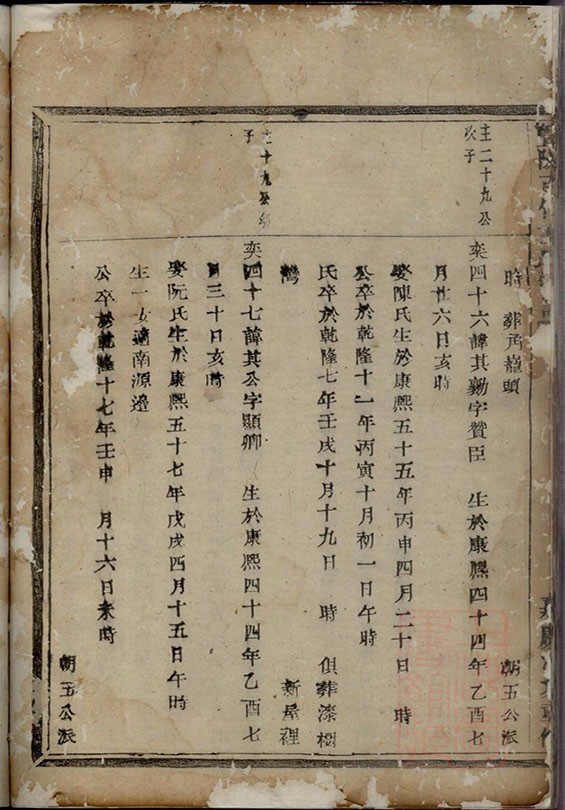 時 葬角嶺頭 朝五公派
主二十九公次子
奕四十六諱其勷字贊臣 生於康熙四十四年乙酉七
月廿六日亥時
娶陳氏生於康熙五十五年丙申四月二十日 時
公卒於乾隆十一年丙寅十月初一日午時
氏卒於乾隆七年壬戌十月十九日 時 俱葬漆樹
灣 新屋裡
主二十九公幼子
奕四十七諱其公字顯卿 生於康熙四十四年乙酉七
月三十日亥時
娶阮氏生於康熙五十七年戊戌四月十五日午時
生一女適南源邊
公卒於乾隆十七年壬申 月十六日未時
朝五公派